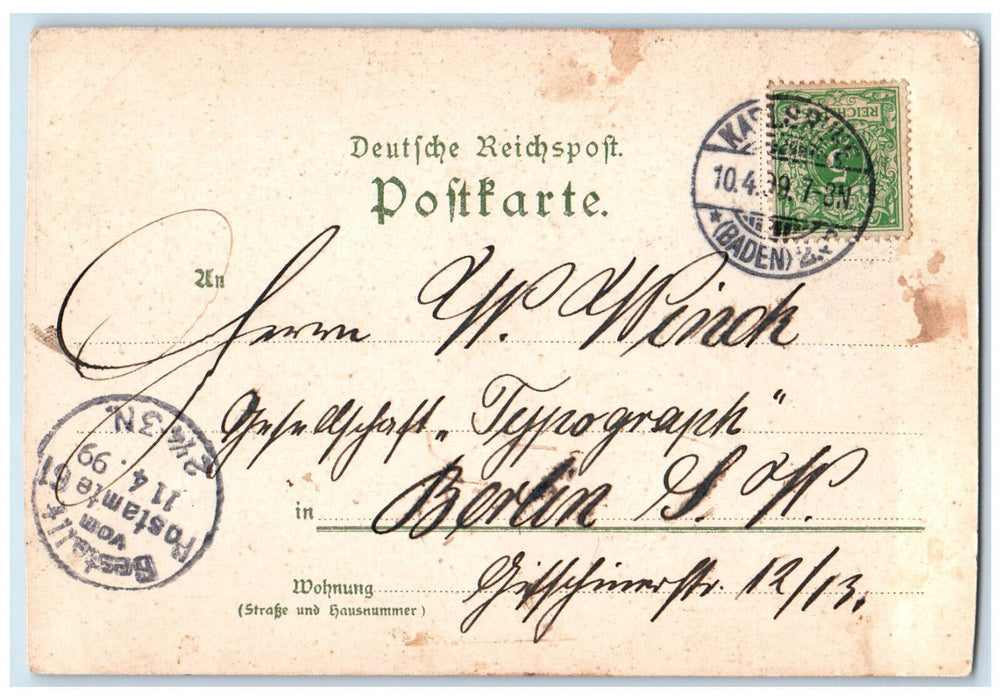 Deutsche Reichspost.
Postkarte.
REICHSPOST
5
KARLSRUHE
10.4.99. 7-8N.
* (BADEN) 2.
An
Herrn W. Winck
Gesellschaft „Typograph“
in Berlin S. W.
Wohnung Gitschinerstr. 12/13.
(Straße und Hausnummer)
Bestellt
vom
Postamte 61
11 4. 99
2¼-3 N.